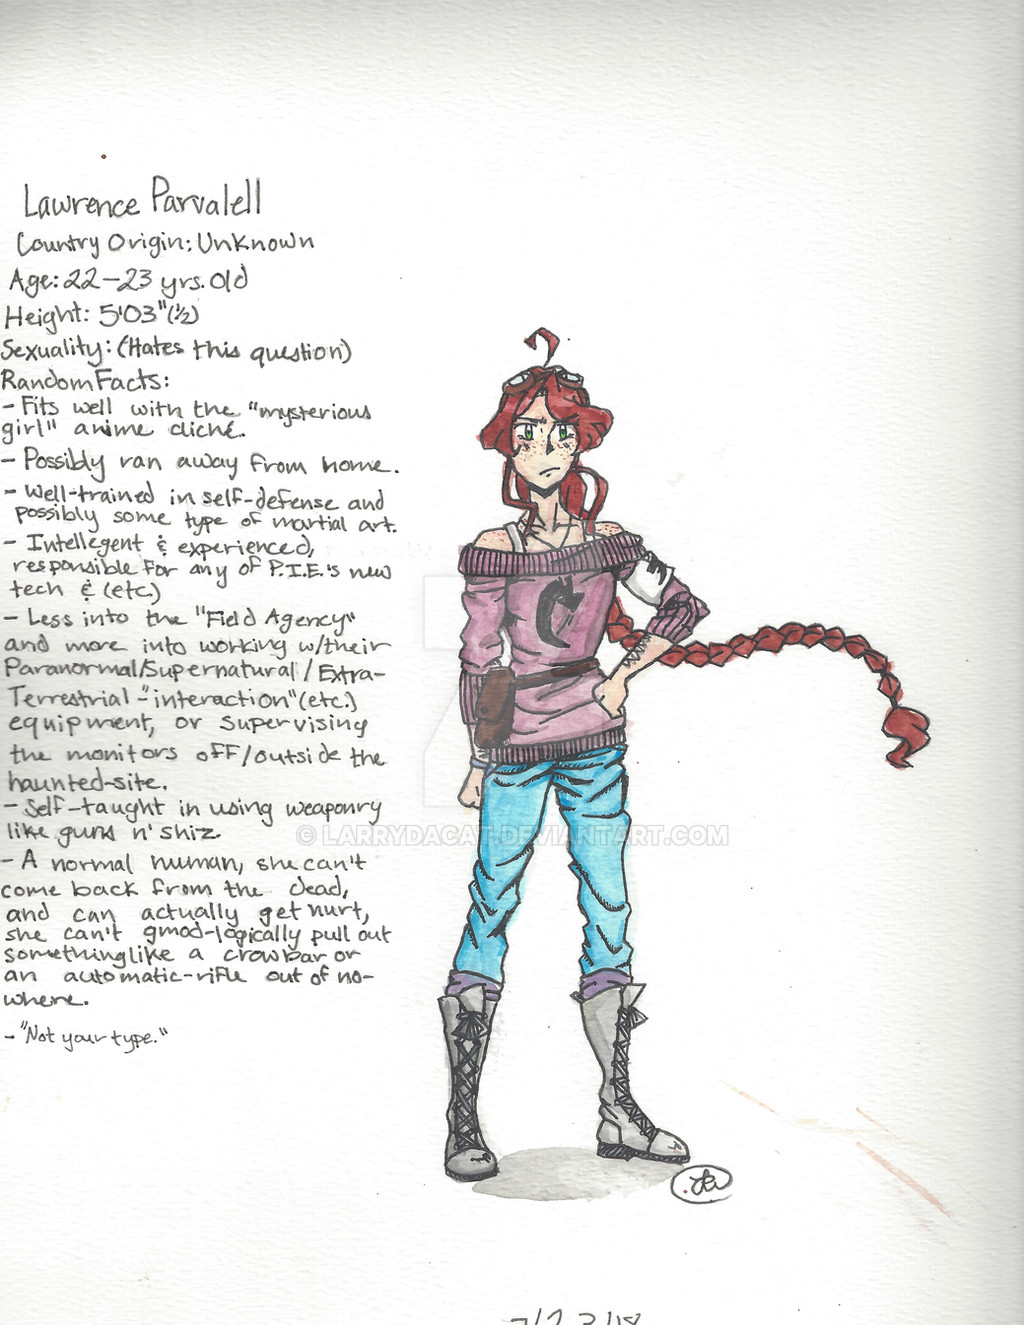 Lawrence Parvalell
Country Origin: Unknown
Age: 22-23 yrs. old
Height: 5'03"(½)
Sexuality: (Hates this question)
Random Facts:
- Fits well with the "mysterious
girl" anime cliché.
- Possibly ran away from home.
- Well-trained in self-defense and
possibly some type of martial art.
- Intellegent & experienced,
responsible for any of P.I.E.'s new
tech & (etc.)
- Less into the "Field Agency"
and more into working w/their
Paranormal/Supernatural/Extra-
Terrestrial-"interaction"(etc.)
equipment, or supervising
the monitors off/outside the
haunted-site.
- Self-taught in using weaponry
like guns n' shiz.
- A normal human, she can't
come back from the dead,
and can actually get hurt,
she can't gmod-logically pull out
something like a crowbar or
an automatic-rifle out of no-
where.
- "Not your type."
© LARRYDACAT.DEVIANTART.COM